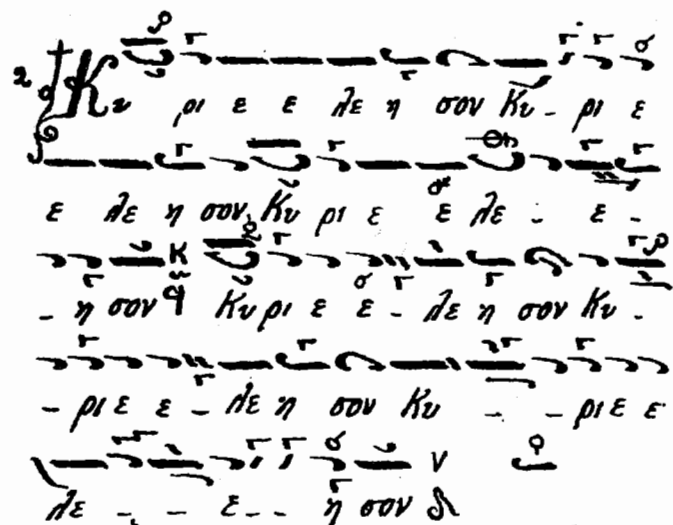 Κυ ρι ε ε λε η σον Κυ - ρι ε
ε λε η σον Κυ ρι ε ε λε - ε -
- η σον Κυ ρι ε ε - λε η σον Κυ -
- ρι ε ε - λε η σον Κυ - - ρι ε ε
λε - - ε - - η σον